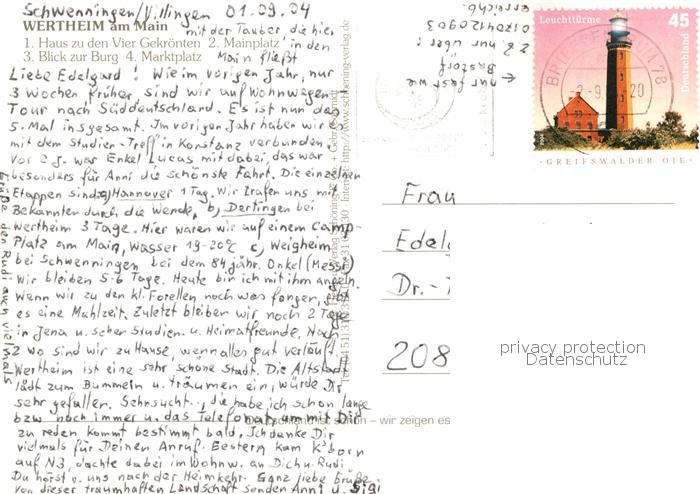 Schwenningen/Villingen 01.09.04
WERTHEIM am Main
mit der Tauber, die hier
1. Haus zu den Vier Gekrönten 2. Mainplatz
in den
3. Blick zur Burg 4. Marktplatz
Main fließt
Liebe Edelgard! Wie im vorigen Jahr, nur
3 Wochen früher, sind wir auf Wohnwagen
Tour nach Süddeutschland. Es ist nun das
5. Mal insgesamt. Im vorigen Jahr haben wir es
mit dem Studien-Treff in Konstanz verbunden.
Vor 2 J. war Enkel Lucas mit dabei, das war
besonders für Anni die schönste Fahrt. Die einzelnen
Etappen sind: a) Hannover 1 Tag. Wir trafen uns mit
Bekannten durch die Wende, b) Dertingen bei
Wertheim 3 Tage. Hier waren wir auf einem Camp-
Platz am Main, Wasser 19-20°C c) Weigheim
bei Schwenningen bei dem 84 jähr. Onkel (Messr)
Wir bleiben 5-6 Tage. Heute bin ich mit ihm angeln.
Wenn wir zu den kl. Forellen noch was fangen, gibt
es eine Mahlzeit. Zuletzt bleiben wir noch 2 Tage
in Jena u. Studien- u. Heimatfreunde. Nach
2 Wo sind wir zu Hause, wenn alles gut verläuft.
Wertheim ist eine sehr schöne Stadt. Die Altstadt
lädt zum Bummeln u. träumen ein, würde Dir
sehr gefallen. Sehnsucht.., die habe ich schon lange
bzw noch immer u. das Telefonat um mit Dir
zu reden kommt bestimmt bald. Ich danke Dir
vielmals für Deinen Anruf. Gestern kam K'born
auf N3, dachte dabei im Wohnw. an Dich u. Rudi.
Du hörst v. uns nach der Heimkehr. Ganz liebe Grüße
von dieser traumhaften Landschaft senden Anni u. Sigi
Grüße den Rudi auch vielmals
erreichb.
01704120903
z Z nur über:
Bastorf
nur fast wie
Leuchttürme
45
Deutschland
BRIEFZENTRUM 78
-2.-9. 20
GREIFSWALDER OIE
Frau
Edelg
Dr.-
208
privacy protection
Datenschutz
ist schön – wir zeigen es